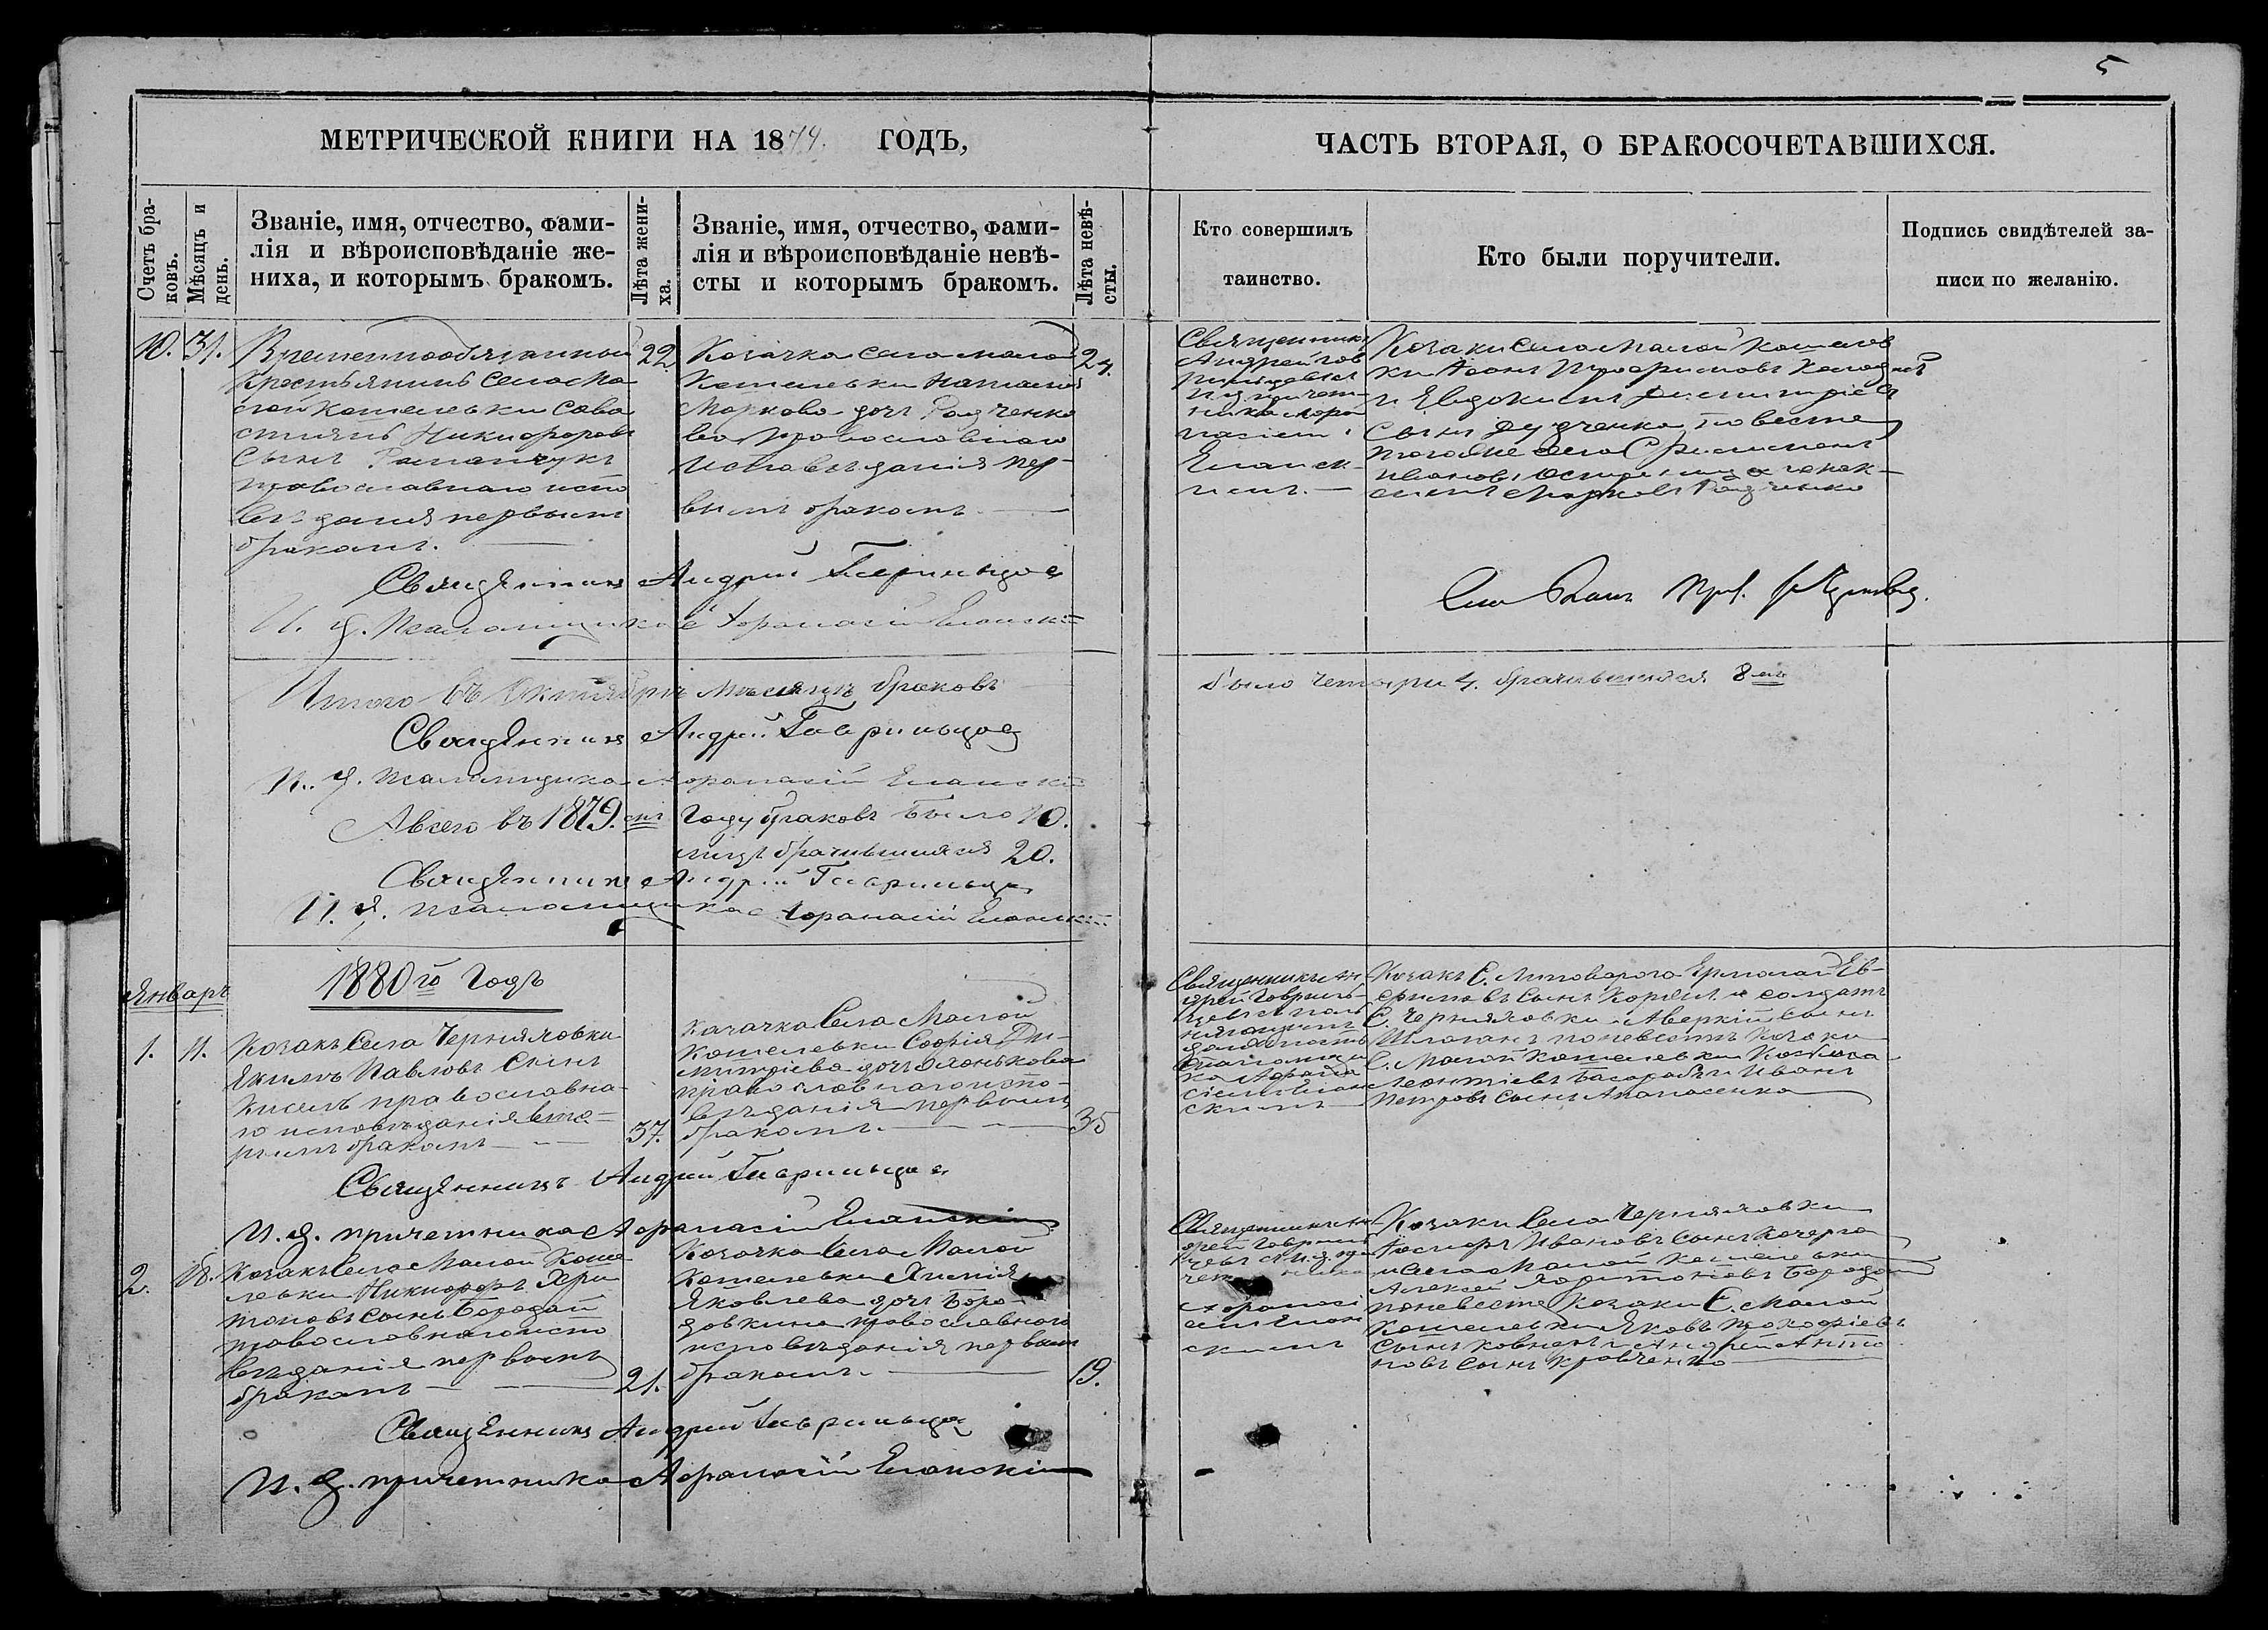 5
МЕТРИЧЕСКОЙ КНИГИ НА 1879. ГОДЪ,
ЧАСТЬ ВТОРАЯ, О БРАКОСОЧЕТАВШИХСЯ.
Счетъ бра-
ковъ.
Мѣсяцъ и
день.
Званіе, имя, отчество, фами-
лія и вѣроисповѣданіе же-
ниха, и которымъ бракомъ.
Лѣта жени-
ха.
Званіе, имя, отчество, фами-
лія и вѣроисповѣданіе невѣ-
сты и которымъ бракомъ.
Лѣта невѣ-
сты.
Кто совершилъ
таинство.
Кто были поручители.
Подпись свидѣтелей за-
писи по желанію.
10. 31.
Временнообязанный
крестьянинъ села Ма
лой Кошелевки Сава
стіянъ Никифоровъ
сынъ
православнаго испо
вѣданія первымъ
бракомъ.
22
Козачка села Малой
Кошелевки Наталія
Маркова дочь Радченко
ва православнаго
исповѣданія пер-
вымъ бракомъ
Священникъ
Андрей Гав
Афа
насіем
Еланск-
имъ.
Козаки села Малой Кошелев
ки
и Евдокимъ Димитріевъ
сынъ Дудченко по невестѣ
тогоже села
Ивановъ
Марковъ Радченко
Священникъ Андрей Гаврильцов
И. д. Псаломщика Афанасій Еланскій
Итого въ Октябрѣ мѣсяцѣ браковъ
было четыри 4. брачившихся 8мь
Священникъ Андрей Гаврильцов
И. д. псаломщика Афанасій Еланскій
А всего въ 1879.мъ году браковъ было 10.
лицъ брачившихся 20.
Священникъ Андрей Гаврильцов
И. д. псаломщика Афанасій Еланскій
Январь
1880го Годъ
1. 11.
Козакъ села Черняховки
Якимъ Павловъ сынъ
Кисель православна-
го исповѣданія вто-
рымъ бракомъ
37.
Козачка села Малой
Кошелевки Софія Ди-
митріева дочь
православнаго испо-
вѣданія первымъ
бракомъ.
35
Священникъ Ан
дрей Гавриль-
цевъ
Афана
сіемъ Елан
скимъ
Козакъ С. Липоварога Ермолай Ев-
сынъ и солдатъ
С. Черняховки Аверкій сынъ
по невестѣ Козаки
С. Малой Кошелевки
Леонтіевъ Басарабъ и Иванъ
Петровъ сынъ Апанасенко
Священникъ Андрей Гаврильцов
И. д. причетника Афанасій Еланскій
2. 18.
Козакъ села Малой Коше
левки Никифоръ Хари
тоновъ сынъ Бородай
православнаго испо
вѣданія первымъ
бракомъ
21.
Козачка села Малой
Кошелевки
Яковлева дочь Боро
довкина православнаго
исповѣданія первымъ
бракомъ.
19.
Священникъ Ан
дрей Гавриль
цевъ и И. д. при
четника
Афанасі
емъ Елан
скимъ
Козаки села Черняховки
Ивановъ сынъ Кочерга
и села Малой Кошелевки
Алексей Харитоновъ Бородай
по невестѣ Козаки С. Малой
Кошелевки Яковъ Прокофіевъ
сынъ и Андрей Анто
новъ сынъ Кравченко
Священникъ Андрей Гаврильцов
И. д. причетника Афанасій Еланскій